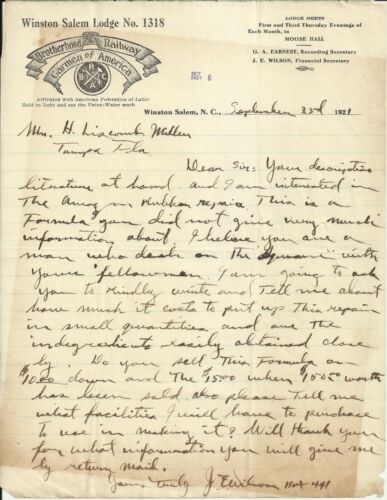 Winston Salem Lodge No. 1318
Brotherhood Railway
Carmen of America
B R C of A
Affiliated with American Federation of Labor
Hold to light and see the Union-Water mark
LODGE MEETS
First and Third Thursday Evenings of
Each Month, in
MOOSE HALL
G. A. EARNEST, Recording Secretary
J. E. WILSON, Financial Secretary
OCT 6
Winston Salem, N. C., September 23rd 1921
Mr. H. Liscomb
Tampa Fla
Dear Sir: Your descriptive
literature at hand and I am interested in
The rubber repair. This is a
Formula you did not give very much
information about. I believe you are a
man who deals on the square with
your fellowman. I am going to ask
you to kindly write and Tell me about
how much it costs to put up This repair
in small quantities and are the
indegredients easily obtained close
by. Do you sell This Formula on
$1000 down and The $1500 when $1500 worth
has been sold. also please Tell me
what facilities I will have to purchase
to use in making it? Will Thank you
for what information you will give me
by return mail.
Yours Truly J. E. Wilson 441